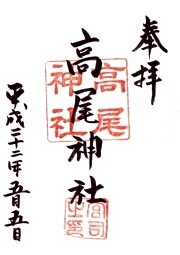 奉拝
高尾神社
高尾
神社
宮司
之印
平成二十二年五月五日